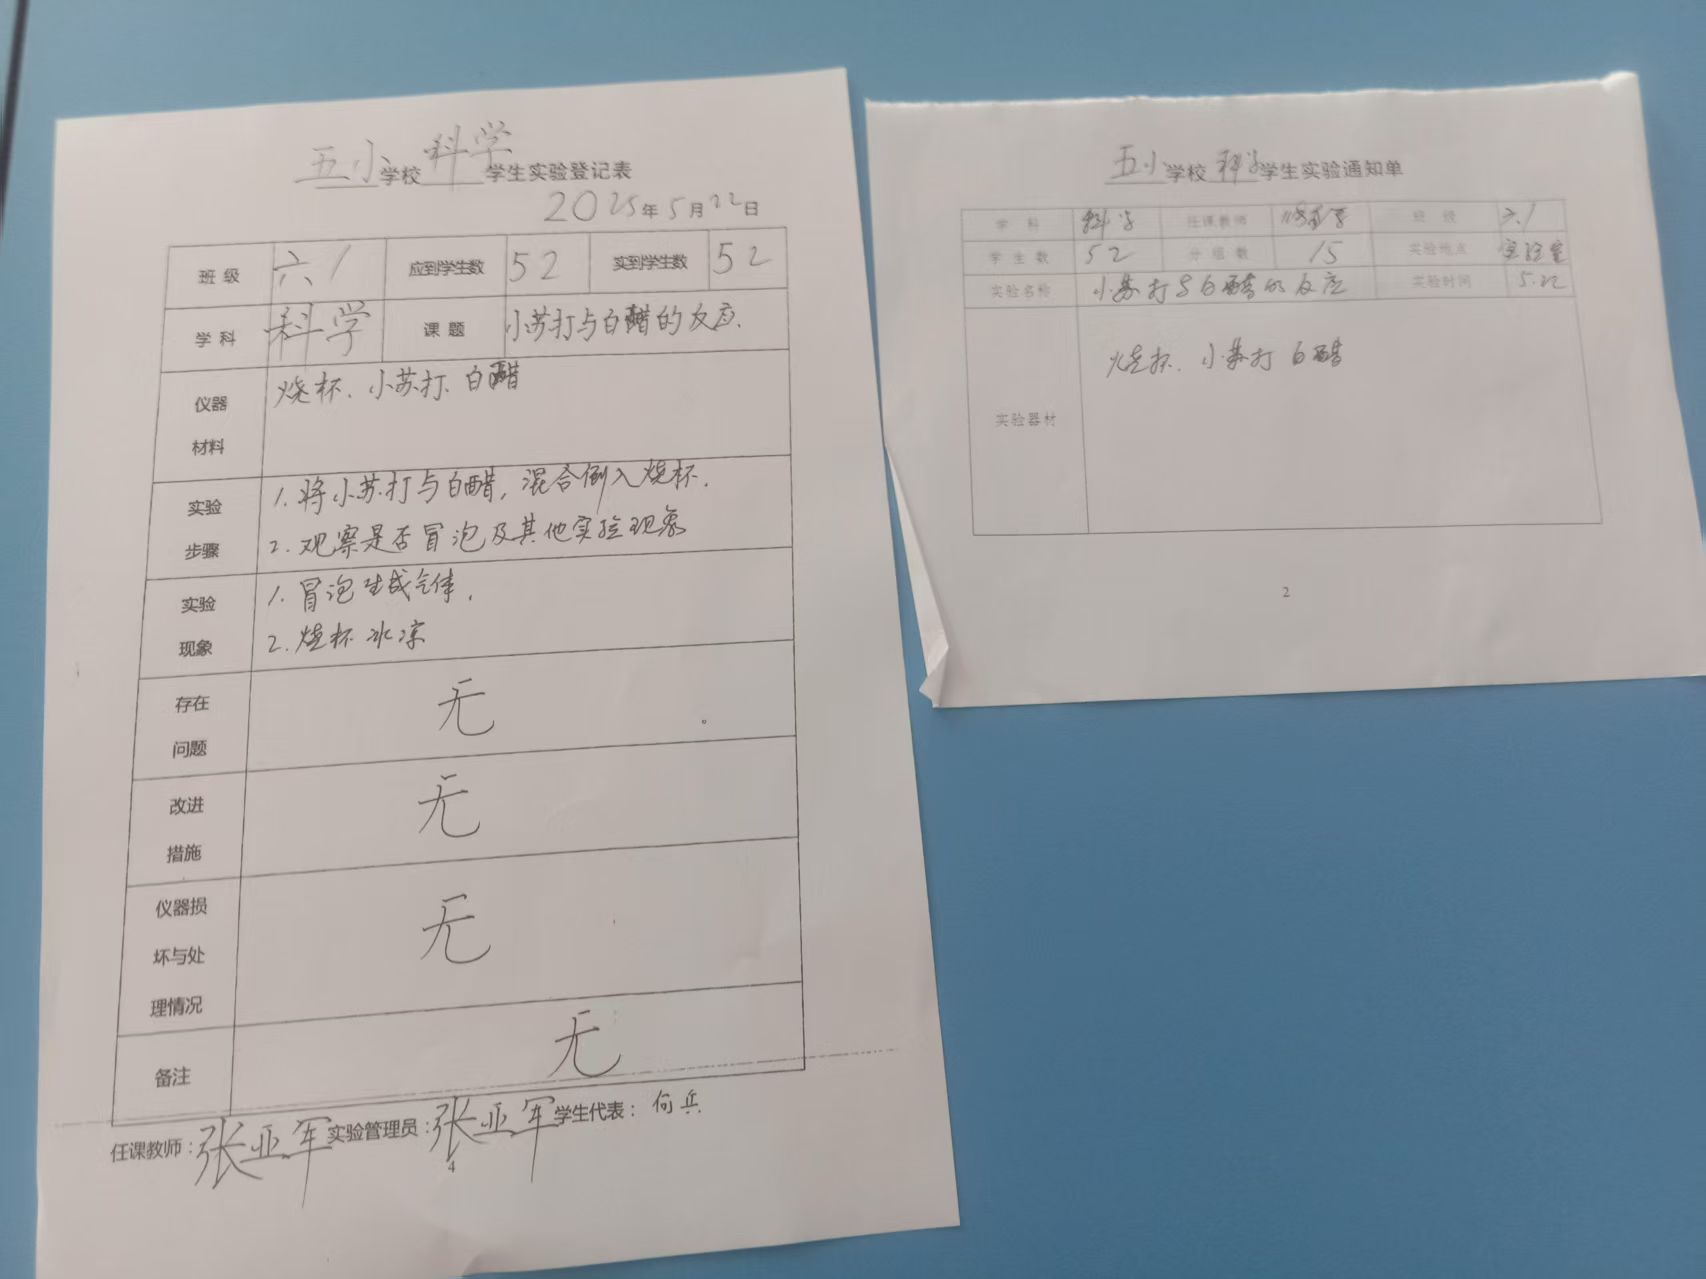 五小学校科学学生实验登记表
2025年5月22日
班级 六1 应到学生数 52 实到学生数 52
学科 科学 课题 小苏打与白醋的反应.
仪器材料 烧杯、小苏打、白醋
实验步骤 1. 将小苏打与白醋,混合倒入烧杯.
2. 观察是否冒泡及其他实验现象
实验现象 1. 冒泡生成气体,
2. 烧杯冰凉
存在问题 无
改进措施 无
仪器损坏与处理情况 无
备注 无
任课教师:张亚军 实验管理员:张亚军 学生代表:何兵
4
五小学校科学学生实验通知单
学科 科学 任课教师 班级 六1
学生数 52 分组数 15 实验地点 实验室
实验名称 小苏打与白醋的反应 实验时间 5.22
实验器材 烧杯、小苏打 白醋
2